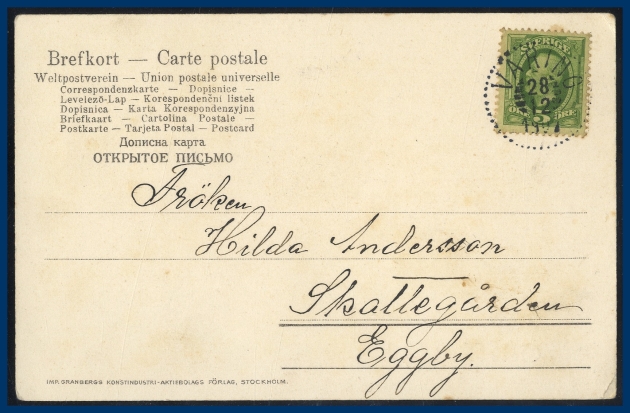 Brefkort — Carte postale
Weltpostverein — Union postale universelle
Correspondenzkarte — Dopisnice —
Levelező-Lap — Korespondenční listek
Dopisnica — Karta Korespondenzyjna
Briefkaart — Cartolina Postale —
Postkarte — Tarjeta Postal — Postcard
Дописна карта
ОТКРЫТОЕ ПИСЬМО
SVERIGE
28
12
5
ÖRE
Fröken
Hilda Andersson
Skattegården
Eggby.
IMP. GRANBERGS KONSTINDUSTRI-AKTIEBOLAGS FÖRLAG, STOCKHOLM.